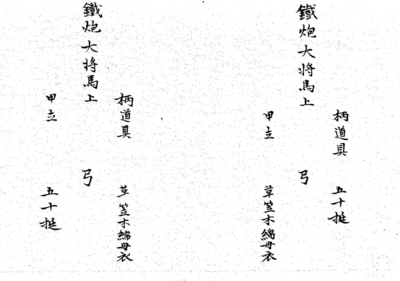 柄道具　五十挺
鐵炮大将馬上　弓
甲立　草笠木綿母衣
柄道具　草笠木綿母衣
鐵炮大将馬上　弓
甲立　五十挺